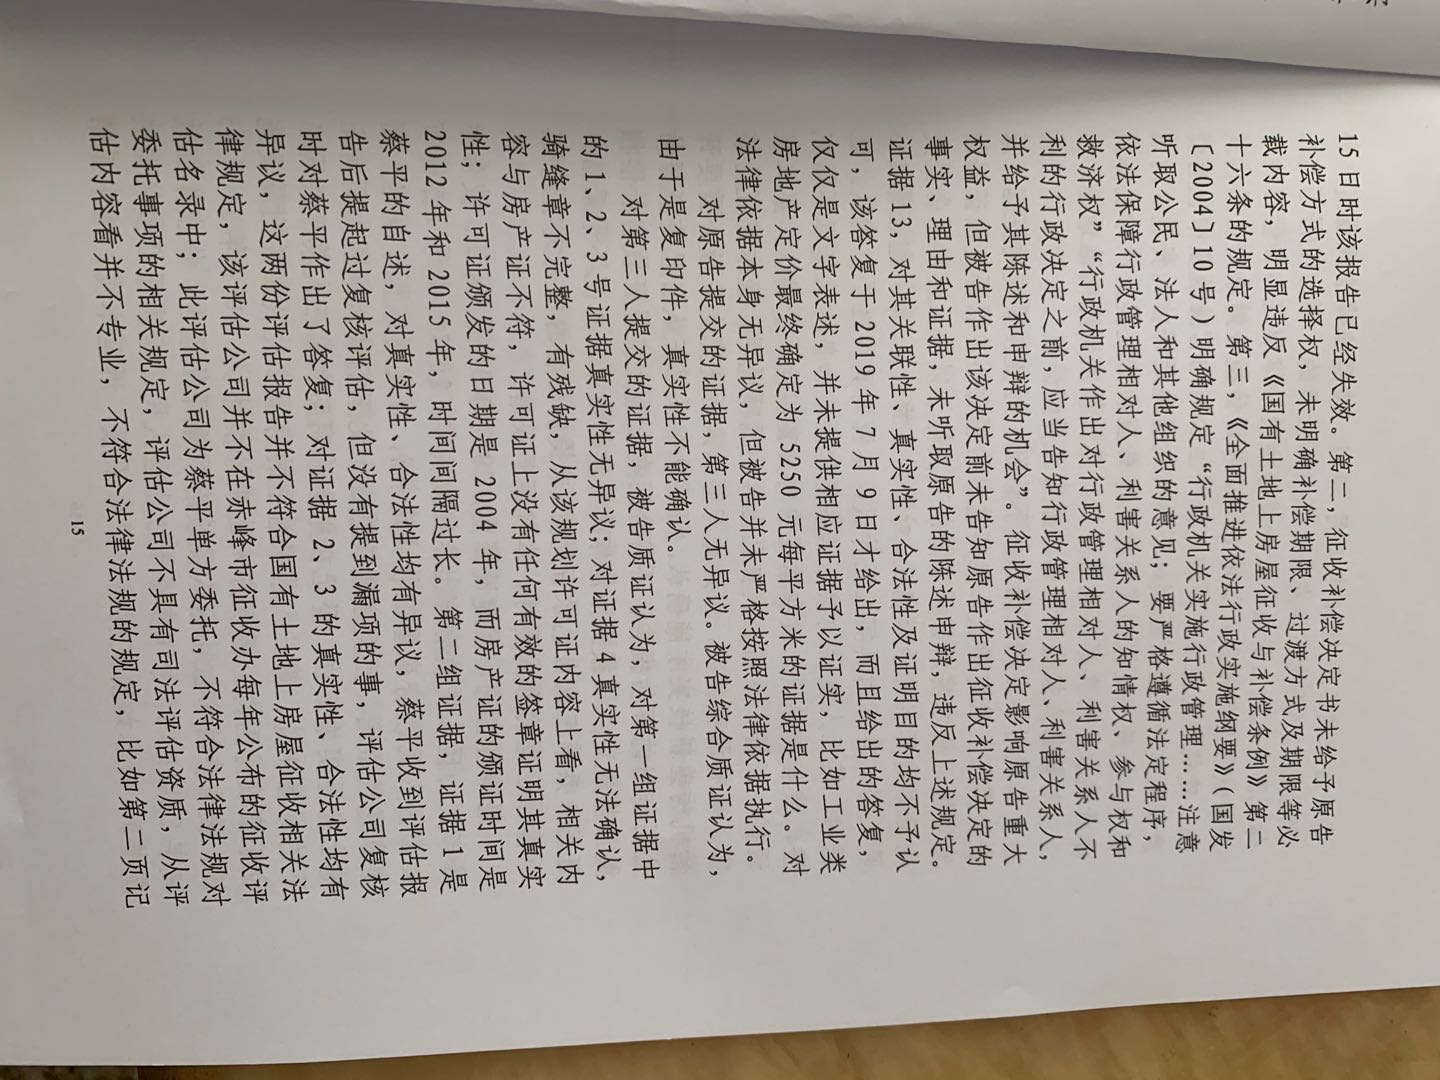 15 日时该报告已经失效。第二，征收补偿决定书未给予原告
补偿方式的选择权，未明确补偿期限、过渡方式及期限等必
载内容，明显违反《国有土地上房屋征收与补偿条例》第二
十六条的规定。第三，《全面推进依法行政实施纲要》（国发
〔2004〕10 号）明确规定“行政机关实施行政管理……注意
听取公民、法人和其他组织的意见；要严格遵循法定程序，
依法保障行政管理相对人、利害关系人的知情权、参与权和
救济权”“行政机关作出对行政管理相对人、利害关系人不
利的行政决定之前，应当告知行政管理相对人、利害关系人，
并给予其陈述和申辩的机会”。征收补偿决定影响原告重大
权益，但被告作出该决定前未告知原告作出征收补偿决定的
事实、理由和证据，未听取原告的陈述申辩，违反上述规定。
证据 13，对其关联性、真实性、合法性及证明目的均不予认
可，该答复于 2019 年 7 月 9 日才给出，而且给出的答复，
仅仅是文字表述，并未提供相应证据予以证实，比如工业类
房地产定价最终确定为 5250 元每平方米的证据是什么。对
法律依据本身无异议，但被告并未严格按照法律依据执行。
对原告提交的证据，第三人无异议。被告综合质证认为，
由于是复印件，真实性不能确认。
对第三人提交的证据，被告质证认为，对第一组证据中
的 1、2、3 号证据真实性无异议；对证据 4 真实性无法确认，
骑缝章不完整，有残缺，从该规划许可证内容上看，相关内
容与房产证不符，许可证上没有任何有效的签章证明其真实
性；许可证颁发的日期是 2004 年，而房产证的颁证时间是
2012 年和 2015 年，时间间隔过长。第二组证据，证据 1 是
蔡平的自述，对真实性、合法性均有异议，蔡平收到评估报
告后提起过复核评估，但没有提到漏项的事，评估公司复核
时对蔡平作出了答复；对证据 2、3 的真实性、合法性均有
异议，这两份评估报告并不符合国有土地上房屋征收相关法
律规定，该评估公司并不在赤峰市征收办每年公布的征收评
估名录中；此评估公司为蔡平单方委托，不符合法律法规对
委托事项的相关规定，评估公司不具有司法评估资质，从评
估内容看并不专业，不符合法律法规的规定，比如第二页记
15